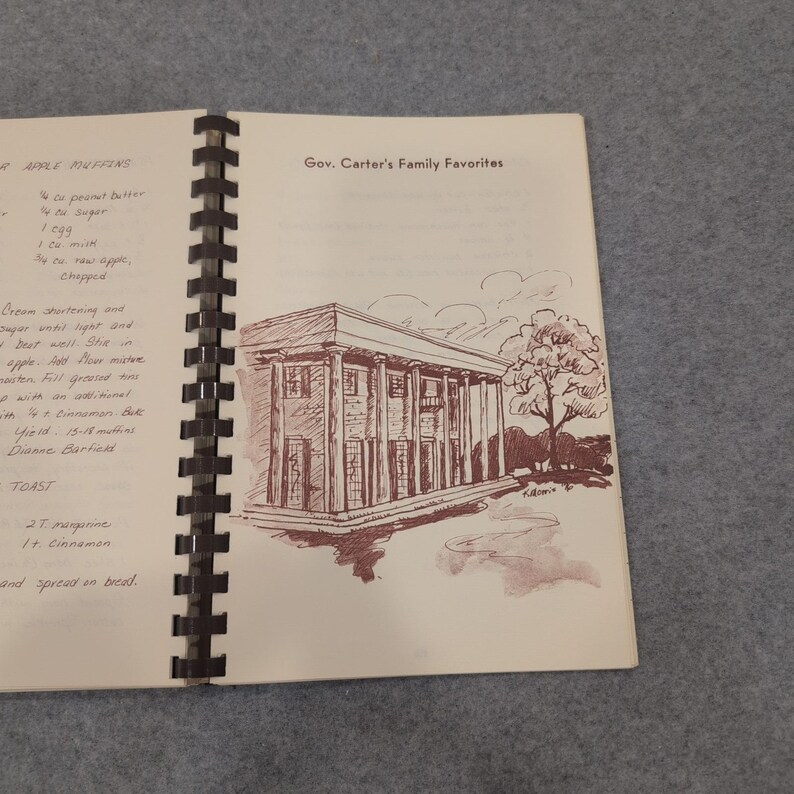 R APPLE MUFFINS
¼ cu. peanut butter
r ¼ cu. sugar
1 egg
1 cu. milk
¾ cu. raw apple,
chopped
Cream shortening and
sugar until light and
d beat well. Stir in
apple. Add flour mixture
moisten. Fill greased tins
p with an additional
ith ¼ t. cinnamon. Bake
Yield: 15-18 muffins
Dianne Barfield
TOAST
2 T. margarine
1 t. cinnamon
and spread on bread.
Gov. Carter's Family Favorites